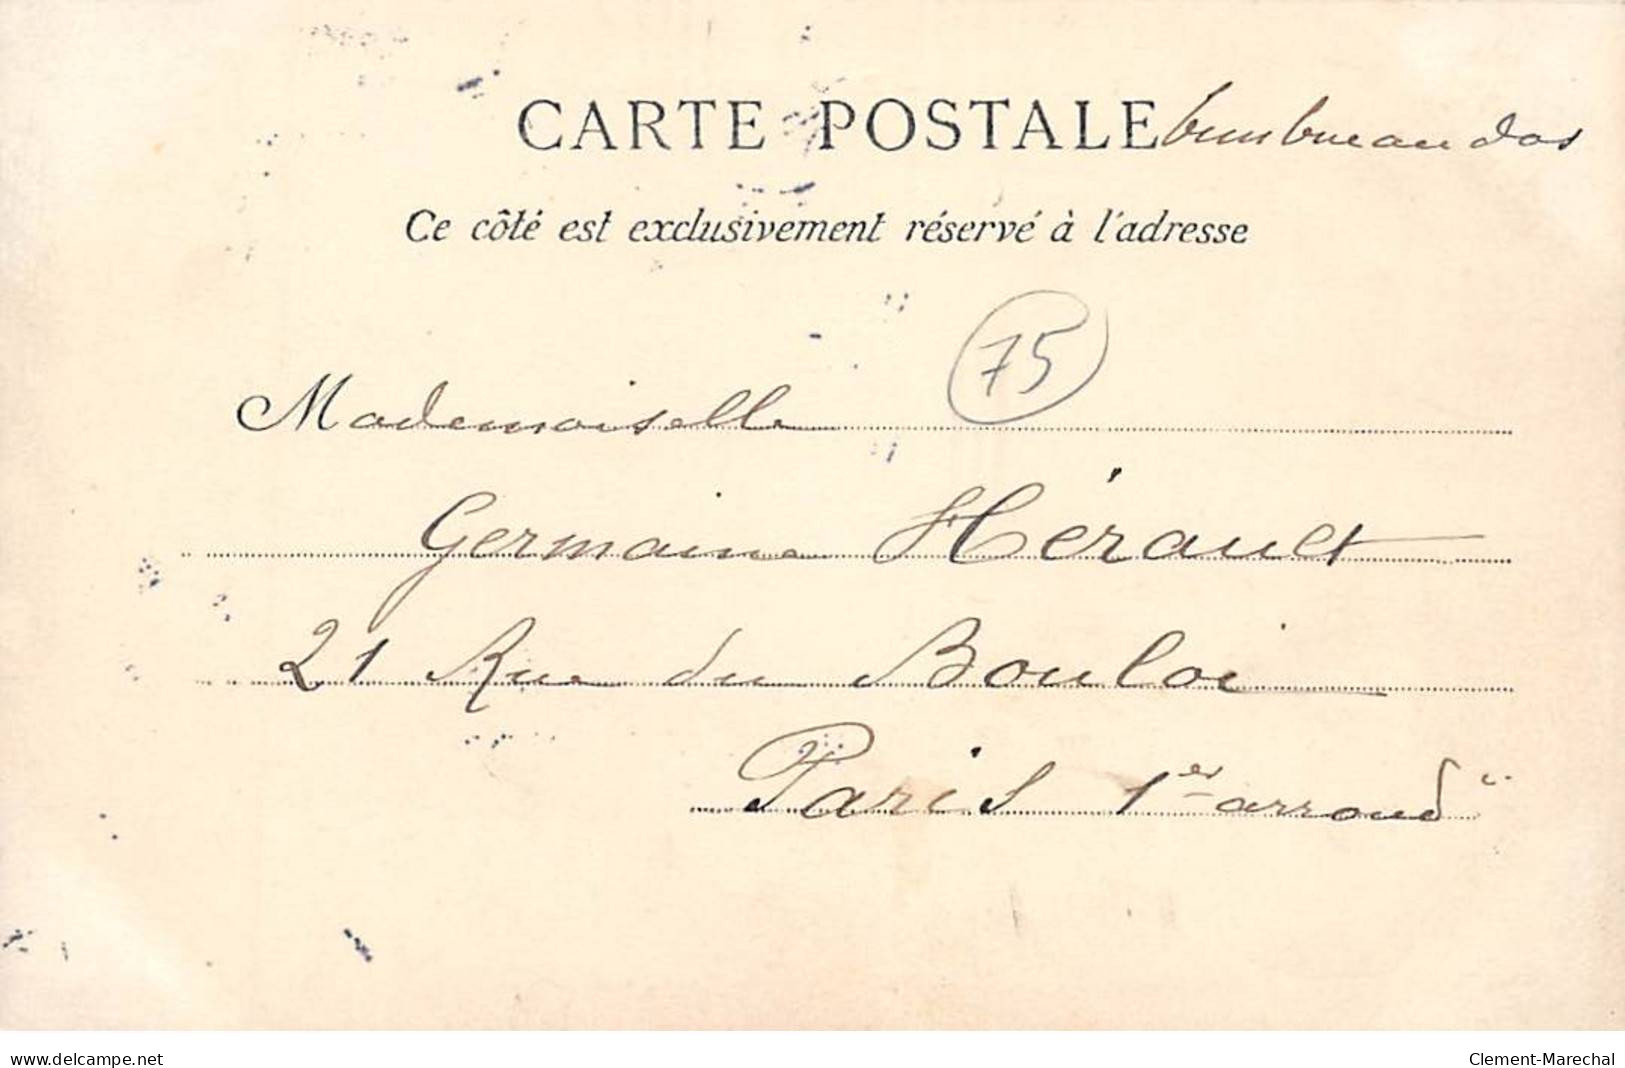 CARTE POSTALE timbre au dos
Ce côté est exclusivement réservé à l'adresse
75
Mademoiselle
Germaine Hérault
21 Rue du Bouloi
Paris 1er arrond
www.delcampe.net
Clement-Marechal